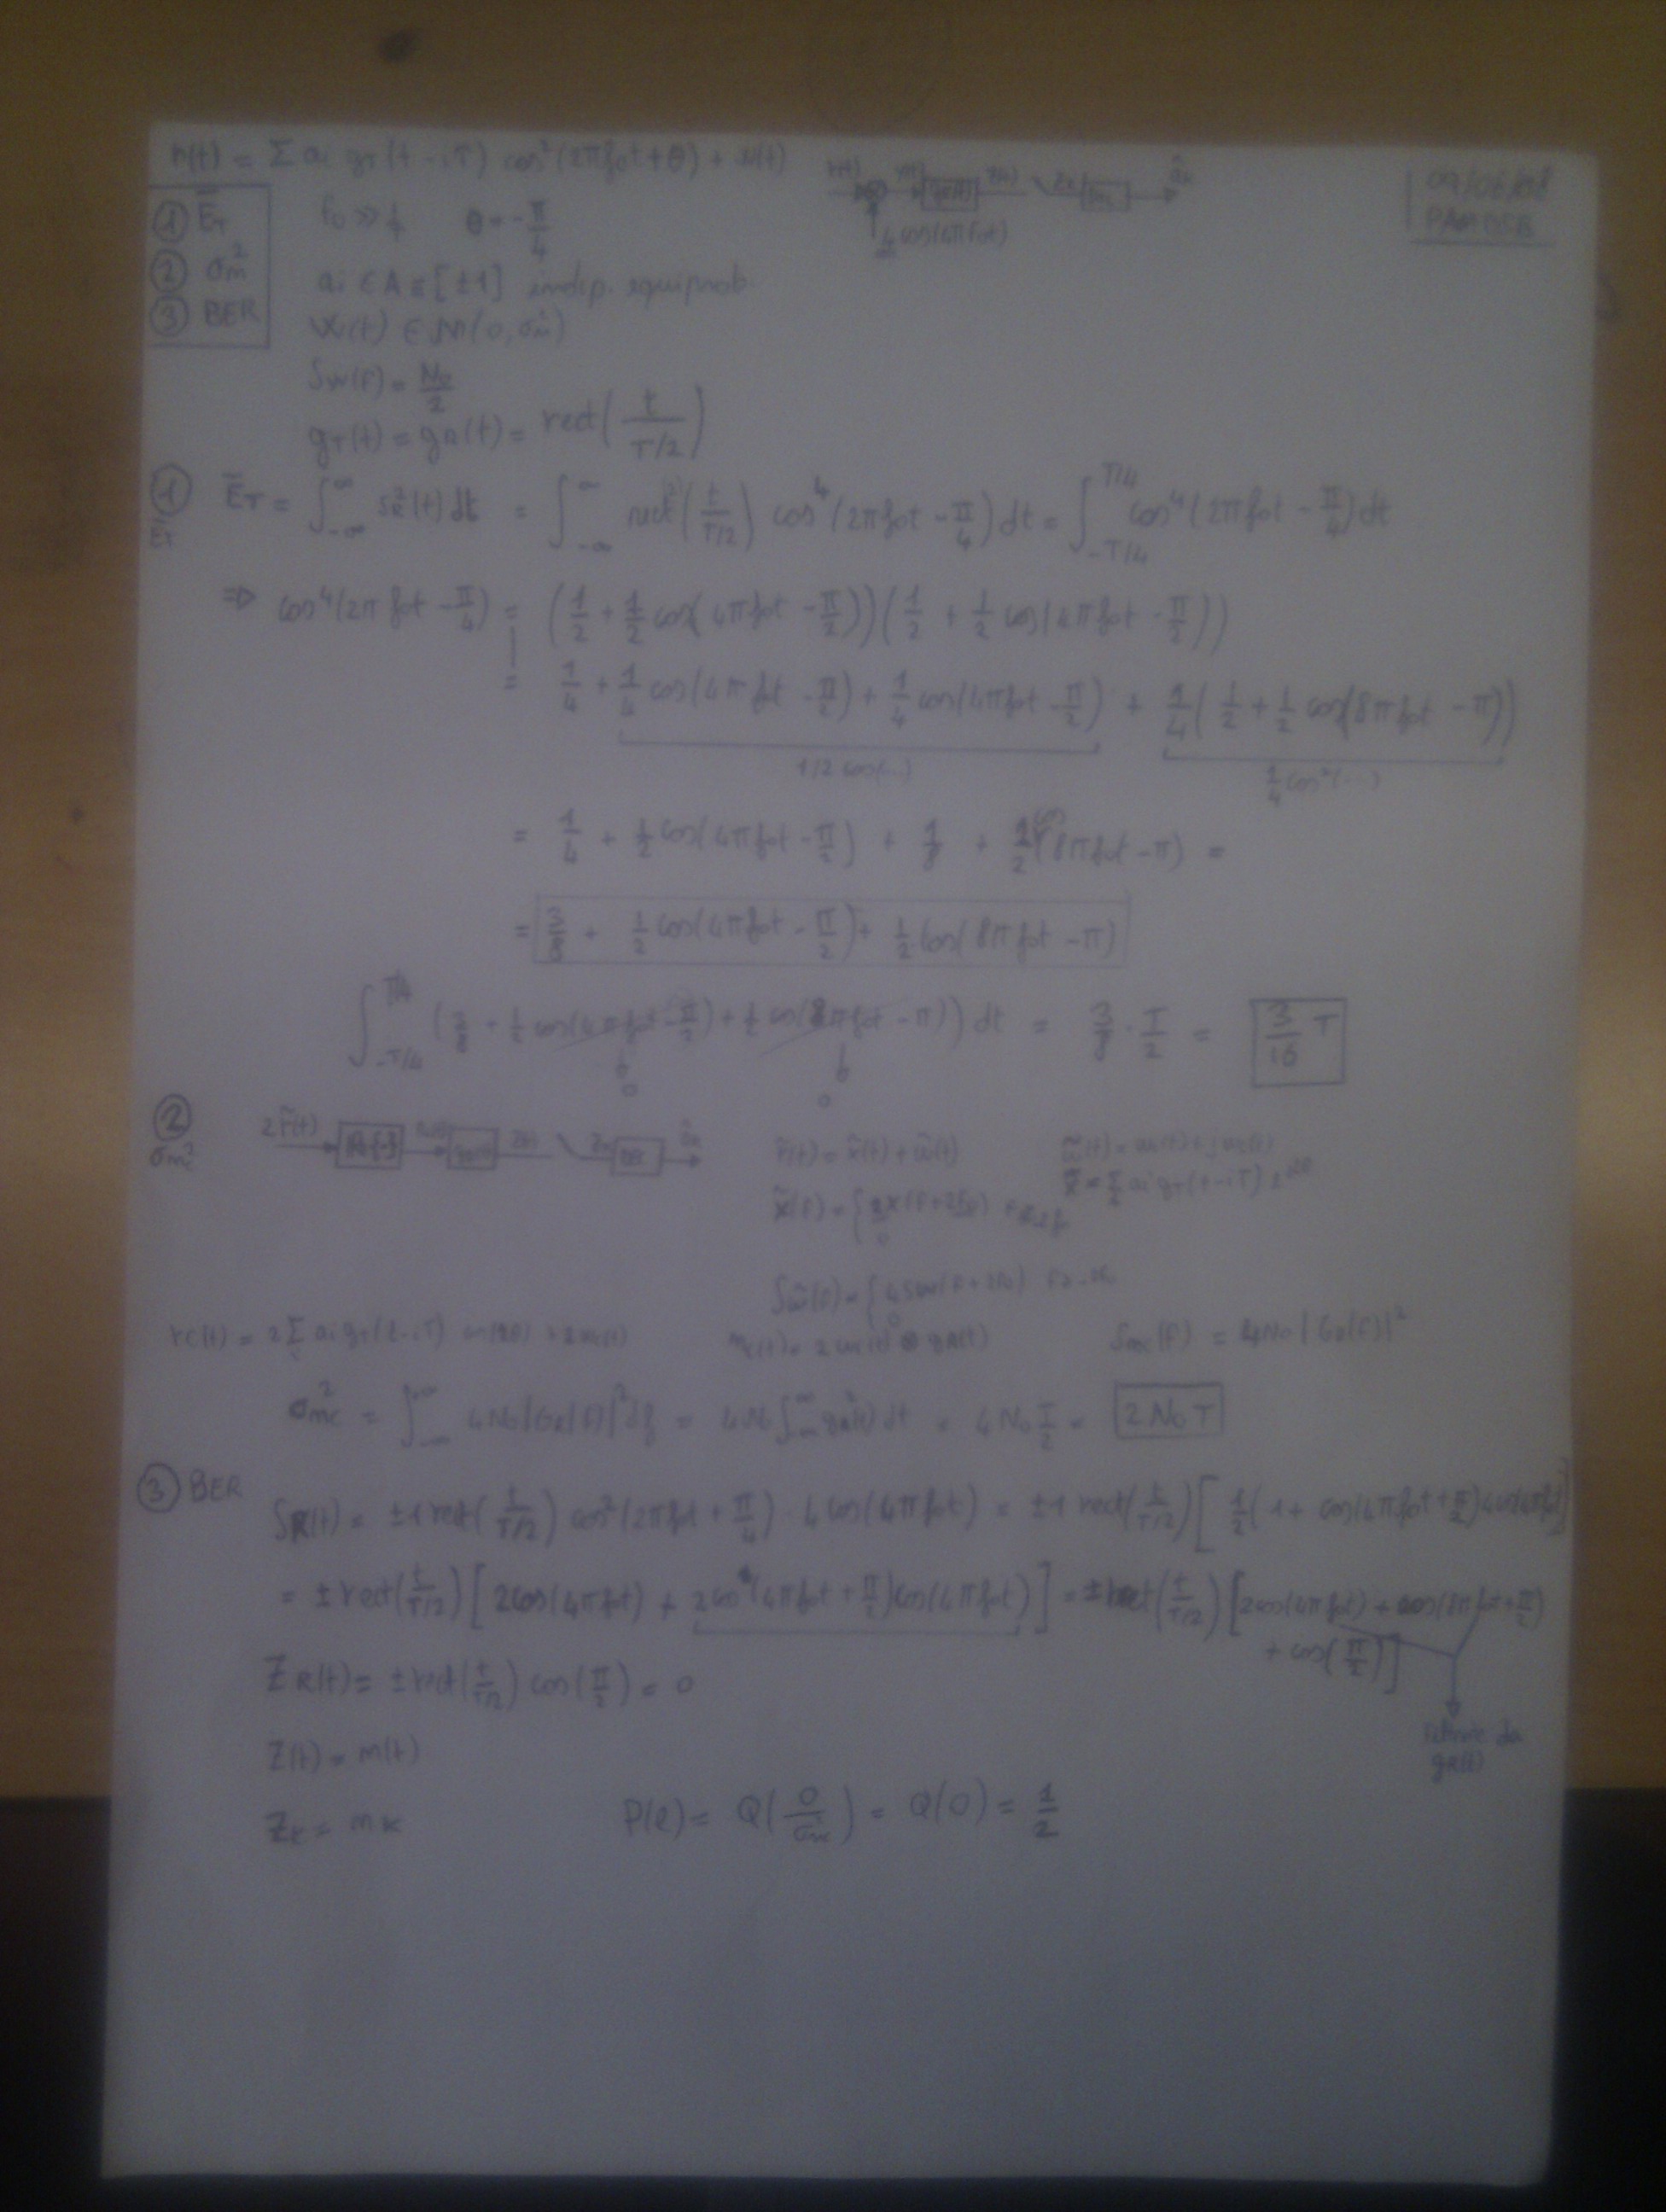 r(t) = Σ ai gT(t-iT) cos²(2πf0t+θ) + w(t)
r(t) z(t) zk âk
4cos(4πf0t)
① ĒT
② σn²
③ BER
f0 >> 1/T θ = -π/4
ai ∈ A ∈ [±1] indip. equiprob.
W(t) ∈ N(0, σn²)
Sw(f) = N0/2
gT(t) = gR(t) = rect(t/(T/2))
① ĒT = ∫_{-∞}^{∞} sR²(t)dt = ∫_{-∞}^{∞} rect²(t/(T/2)) cos⁴(2πf0t - π/4)dt = ∫_{-T/4}^{T/4} cos⁴(2πf0t - π/4)dt
ĒT
⇒ cos⁴(2πf0t - π/4) = (1/2 + 1/2 cos(4πf0t - π/2))(1/2 + 1/2 cos(4πf0t - π/2))
= 1/4 + 1/4 cos(4πf0t - π/2) + 1/4 cos(4πf0t - π/2) + 1/4(1/2 + 1/2 cos(8πf0t - π))
1/2 cos(...) 1/4 cos²(...)
= 1/4 + 1/2 cos(4πf0t - π/2) + 1/8 + 1/2 cos(8πf0t - π) =
= 3/8 + 1/2 cos(4πf0t - π/2) + 1/2 cos(8πf0t - π)
∫_{-T/4}^{T/4} (3/8 + 1/2 cos(4πf0t - π/2) + 1/2 cos(8πf0t - π))dt = 3/8 · T/2 = 3/16 T
0 0
②
σnc²
2r̃(t) Re{·} z(t) zk âk
r̃(t) = x̃(t) + w̃(t) w̃(t) = wc(t) + jws(t)
Sw̃(f) = { 4Sw(f+2f0)
0
rc(t) = 2Σ ai gT(t-iT) cos(2θ) + 2wc(t) nc(t) = 2wc(t) ⊗ gR(t) Snc(f) = 4N0|GR(f)|²
σnc² = ∫_{-∞}^{∞} 4N0|GR(f)|²df = 4N0∫_{-∞}^{∞} gR²(t)dt = 4N0 T/2 = 2N0T
③ BER
SR(t) = ±1 rect(t/(T/2)) cos²(2πf0t + π/4) · 4cos(4πf0t) = ±1 rect(t/(T/2)) [1/2(1 + cos(4πf0t + π/2)4cos(4πf0t)]
= ±rect(t/(T/2)) [2cos(4πf0t) + 2cos(4πf0t + π/2)cos(4πf0t)] = ±rect(t/(T/2)) [2cos(4πf0t) + cos(8πf0t + π/2)
+ cos(π/2)]
ZR(t) = ±rect(t/(T/2)) cos(π/2) = 0
da
gR(t)
Z(t) = n(t)
Zk = nk P(e) = Q(0/σnc) = Q(0) = 1/2